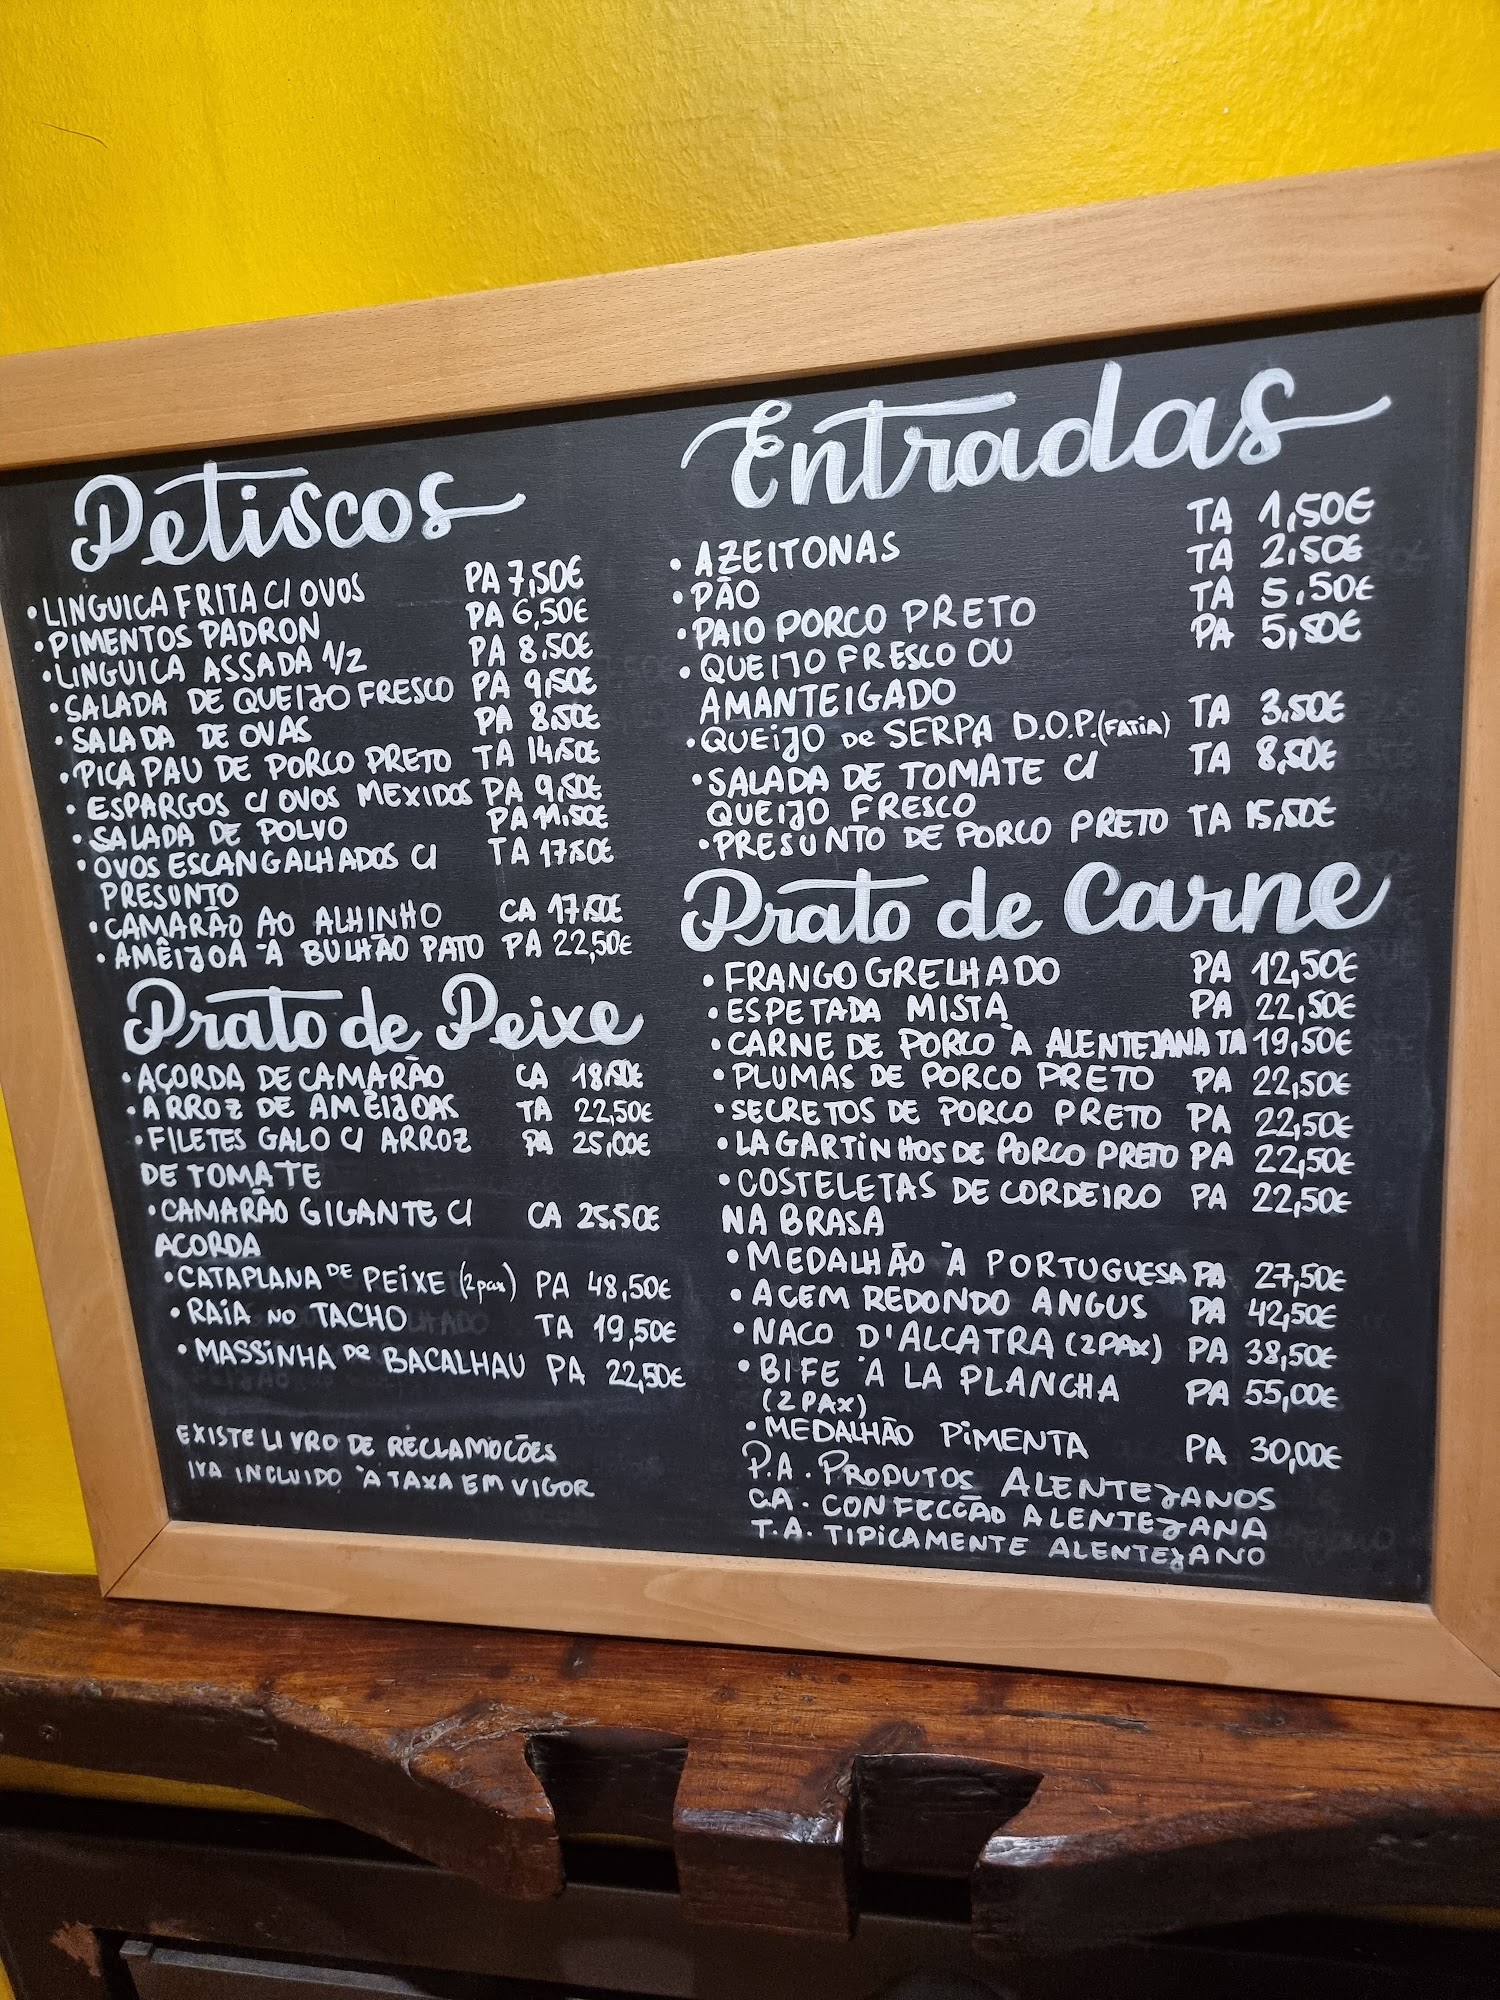 Petiscos
• LINGUICA FRITA C/ OVOS PA 7,50€
• PIMENTOS PADRON PA 6,50€
• LINGUICA ASSADA 1/2 PA 8.50€
• SALADA DE QUEIJO FRESCO PA 9,50€
• SALADA DE OVAS PA 8.50€
• PICA PAU DE PORCO PRETO TA 14,50€
• ESPARGOS C/ OVOS MEXIDOS PA 9,50€
• SALADA DE POLVO PA 11.50€
• OVOS ESCANGALHADOS C/ TA 17,50€
PRESUNTO
• CAMARÃO AO ALHINHO CA 17,50€
• AMÊIJOA À BULHÃO PATO PA 22,50€
Prato de Peixe
• AÇORDA DE CAMARÃO CA 18,50€
• ARROZ DE AMÊIJOAS TA 22,50€
• FILETES GALO C/ ARROZ PA 25,00€
DE TOMATE
• CAMARÃO GIGANTE C/ CA 25.50€
AÇORDA
• CATAPLANA DE PEIXE (2pax) PA 48,50€
• RAIA NO TACHO TA 19,50€
• MASSINHA DE BACALHAU PA 22,50€
EXISTE LIVRO DE RECLAMOCÕES
IVA INCLUIDO À TAXA EM VIGOR
Entradas
• AZEITONAS TA 1,50€
• PÃO TA 2,50€
• PAIO PORCO PRETO TA 5,50€
• QUEIJO FRESCO OU PA 5,50€
AMANTEIGADO
• QUEIJO DE SERPA D.O.P. (FATIA) TA 3.50€
• SALADA DE TOMATE C/ TA 8,50€
QUEIJO FRESCO
• PRESUNTO DE PORCO PRETO TA 15,50€
Prato de Carne
• FRANGO GRELHADO PA 12,50€
• ESPETADA MISTA PA 22,50€
• CARNE DE PORCO À ALENTEJANA TA 19,50€
• PLUMAS DE PORCO PRETO PA 22,50€
• SECRETOS DE PORCO PRETO PA 22,50€
• LAGARTINHOS DE PORCO PRETO PA 22,50€
• COSTELETAS DE CORDEIRO PA 22,50€
NA BRASA
• MEDALHÃO À PORTUGUESA PA 27,50€
• ACEM REDONDO ANGUS PA 42,50€
• NACO D'ALCATRA (2PAX) PA 38,50€
• BIFE À LA PLANCHA PA 55,00€
(2 PAX)
• MEDALHÃO PIMENTA PA 30,00€
P.A. PRODUTOS ALENTEJANOS
C.A. CONFECÇÃO ALENTEJANA
T.A. TIPICAMENTE ALENTEJANO